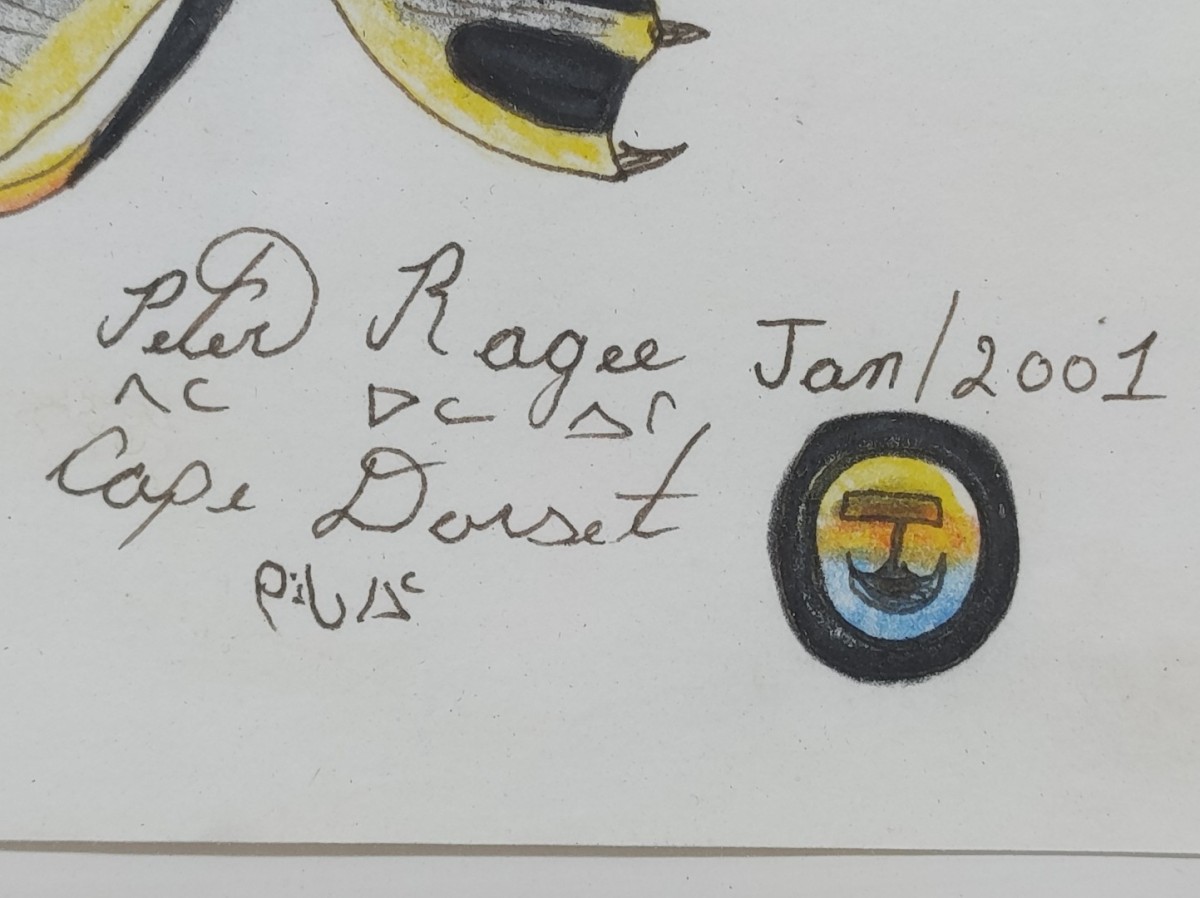 Peter Ragee Jan/2001
ᐱᑕ ᐅᓚ ᐃᒋ
Cape Dorset